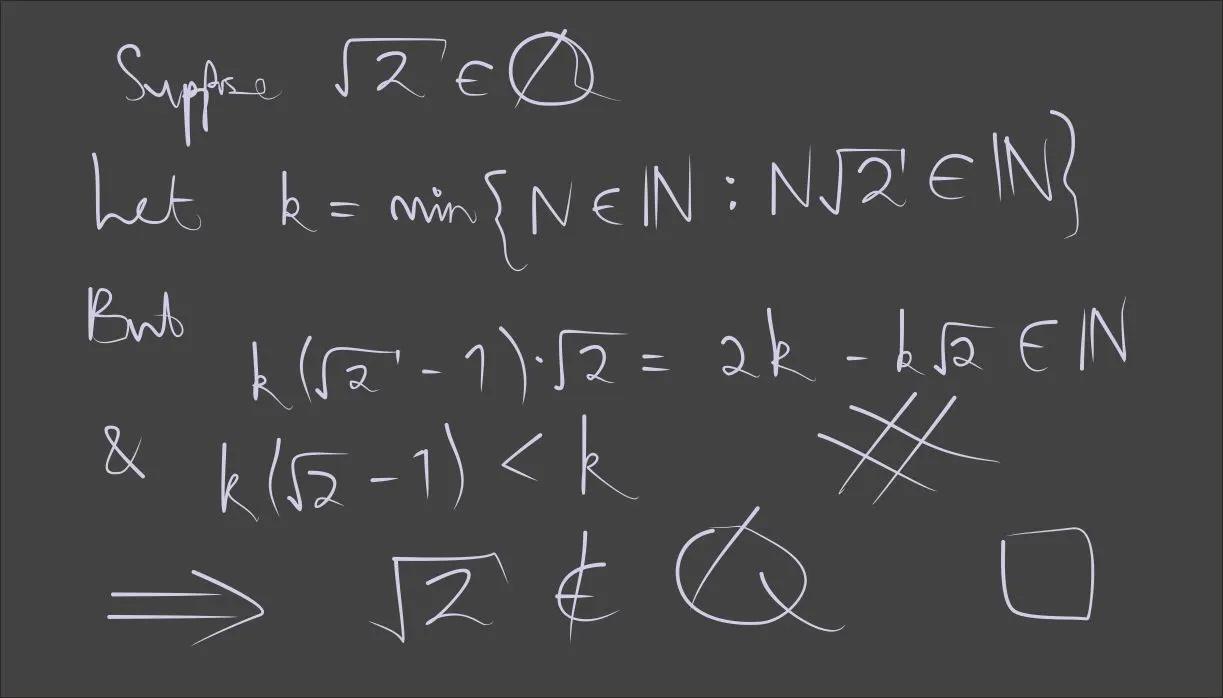 Suppose √2 ∈ ℚ
Let k = min{N ∈ ℕ : N√2 ∈ ℕ}
But k(√2 - 1)·√2 = 2k - k√2 ∈ ℕ
& k(√2 - 1) < k ※
⟹ √2 ∉ ℚ □